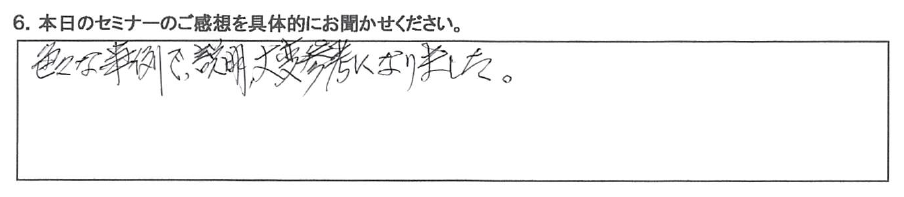 6. 本日のセミナーのご感想を具体的にお聞かせください。
色々な事例で、説明、大変参考になりました。